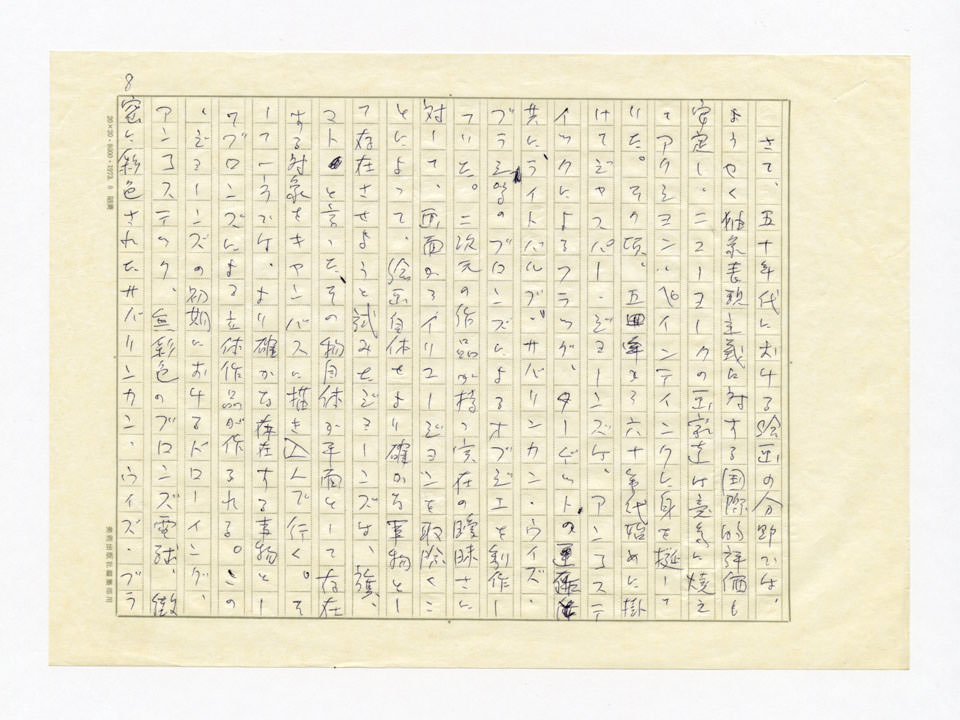 さて、五十年代に於ける絵画の分野では、
ようやく抽象表現主義に対する国際的評価も
安定し、ニューヨークの画家達は意気に燃え
てアクション・ペインティングに身を挺して
いた。その頃、五四年から六十年代始めに掛
けてジャスパー・ジョーンズは、アンコステ
ィックによるフラッグ、ターゲットの連作と
共に、ライトバルブ、サバリンカン・ウイズ・
ブラシ等のブロンズによるオブジェを制作し
ていた。二次元の作品が持つ実在の曖昧さに
対して、画面からイリュージョンを取除くこ
とによって、絵画自体をより確かな事物とし
て存在させようと試みたジョーンズは、旗、
マトと言った、その物自体が平面として存在
する対象をキャンバスに描き込んで行く。そ
して一方では、より確かな存在する事物とし
てブロンズによる立体作品が作られる。この
、ジョーンズの初期におけるドローイング、
アンコスティック、無彩色のブロンズ電球、緻
密に彩色されたサバリンカン・ウィズ・ブラ
8
20×20